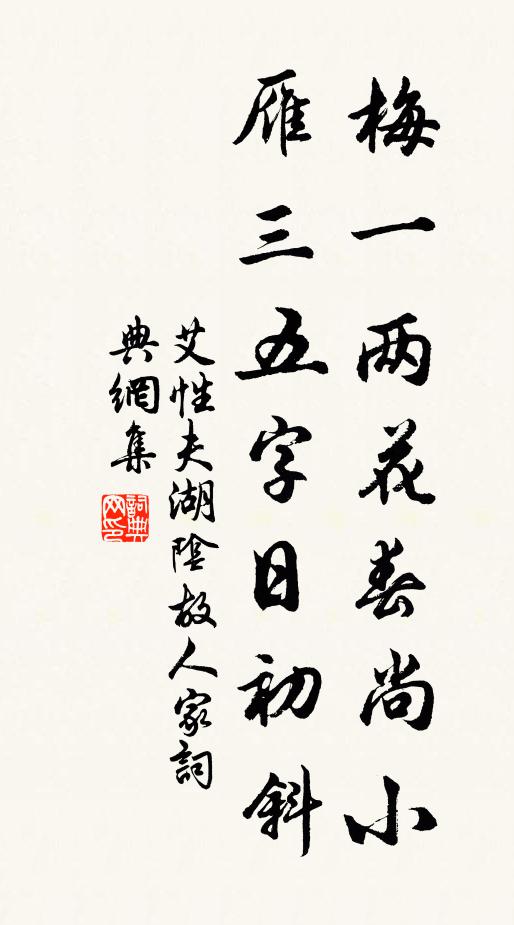 梅一两花春尚小
雁三五字日初斜
艾性夫湖陰故人家詞
典網集
詞典网印